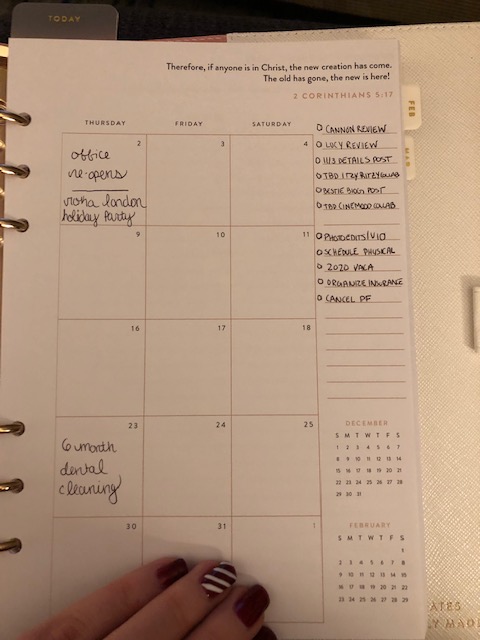 TODAY
Therefore, if anyone is in Christ, the new creation has come.
The old has gone, the new is here!
2 CORINTHIANS 5:17
FEB
MAR
THURSDAY FRIDAY SATURDAY
2 3 4
office
re-opens
london
holiday party
9 10 11
16 17 18
23 24 25
6 month
dental
cleaning
30 31 1
CANNON REVIEW
LUCY REVIEW
DETAILS POST
TBD ITZY RITZY COLLAB
BESTIE BLOG POST
TBD CINEMOOD COLLAB
PHOTO EDITS 1/10
SCHEDULE PHYSICAL
2020 VACA
ORGANIZE INSURANCE
CANCEL PF
DECEMBER
S M T W T F S
1 2 3 4 5 6 7
8 9 10 11 12 13 14
15 16 17 18 19 20 21
22 23 24 25 26 27 28
29 30 31
FEBRUARY
S M T W T F S
1
2 3 4 5 6 7 8
9 10 11 12 13 14 15
16 17 18 19 20 21 22
23 24 25 26 27 28 29
ATES
Y MADE